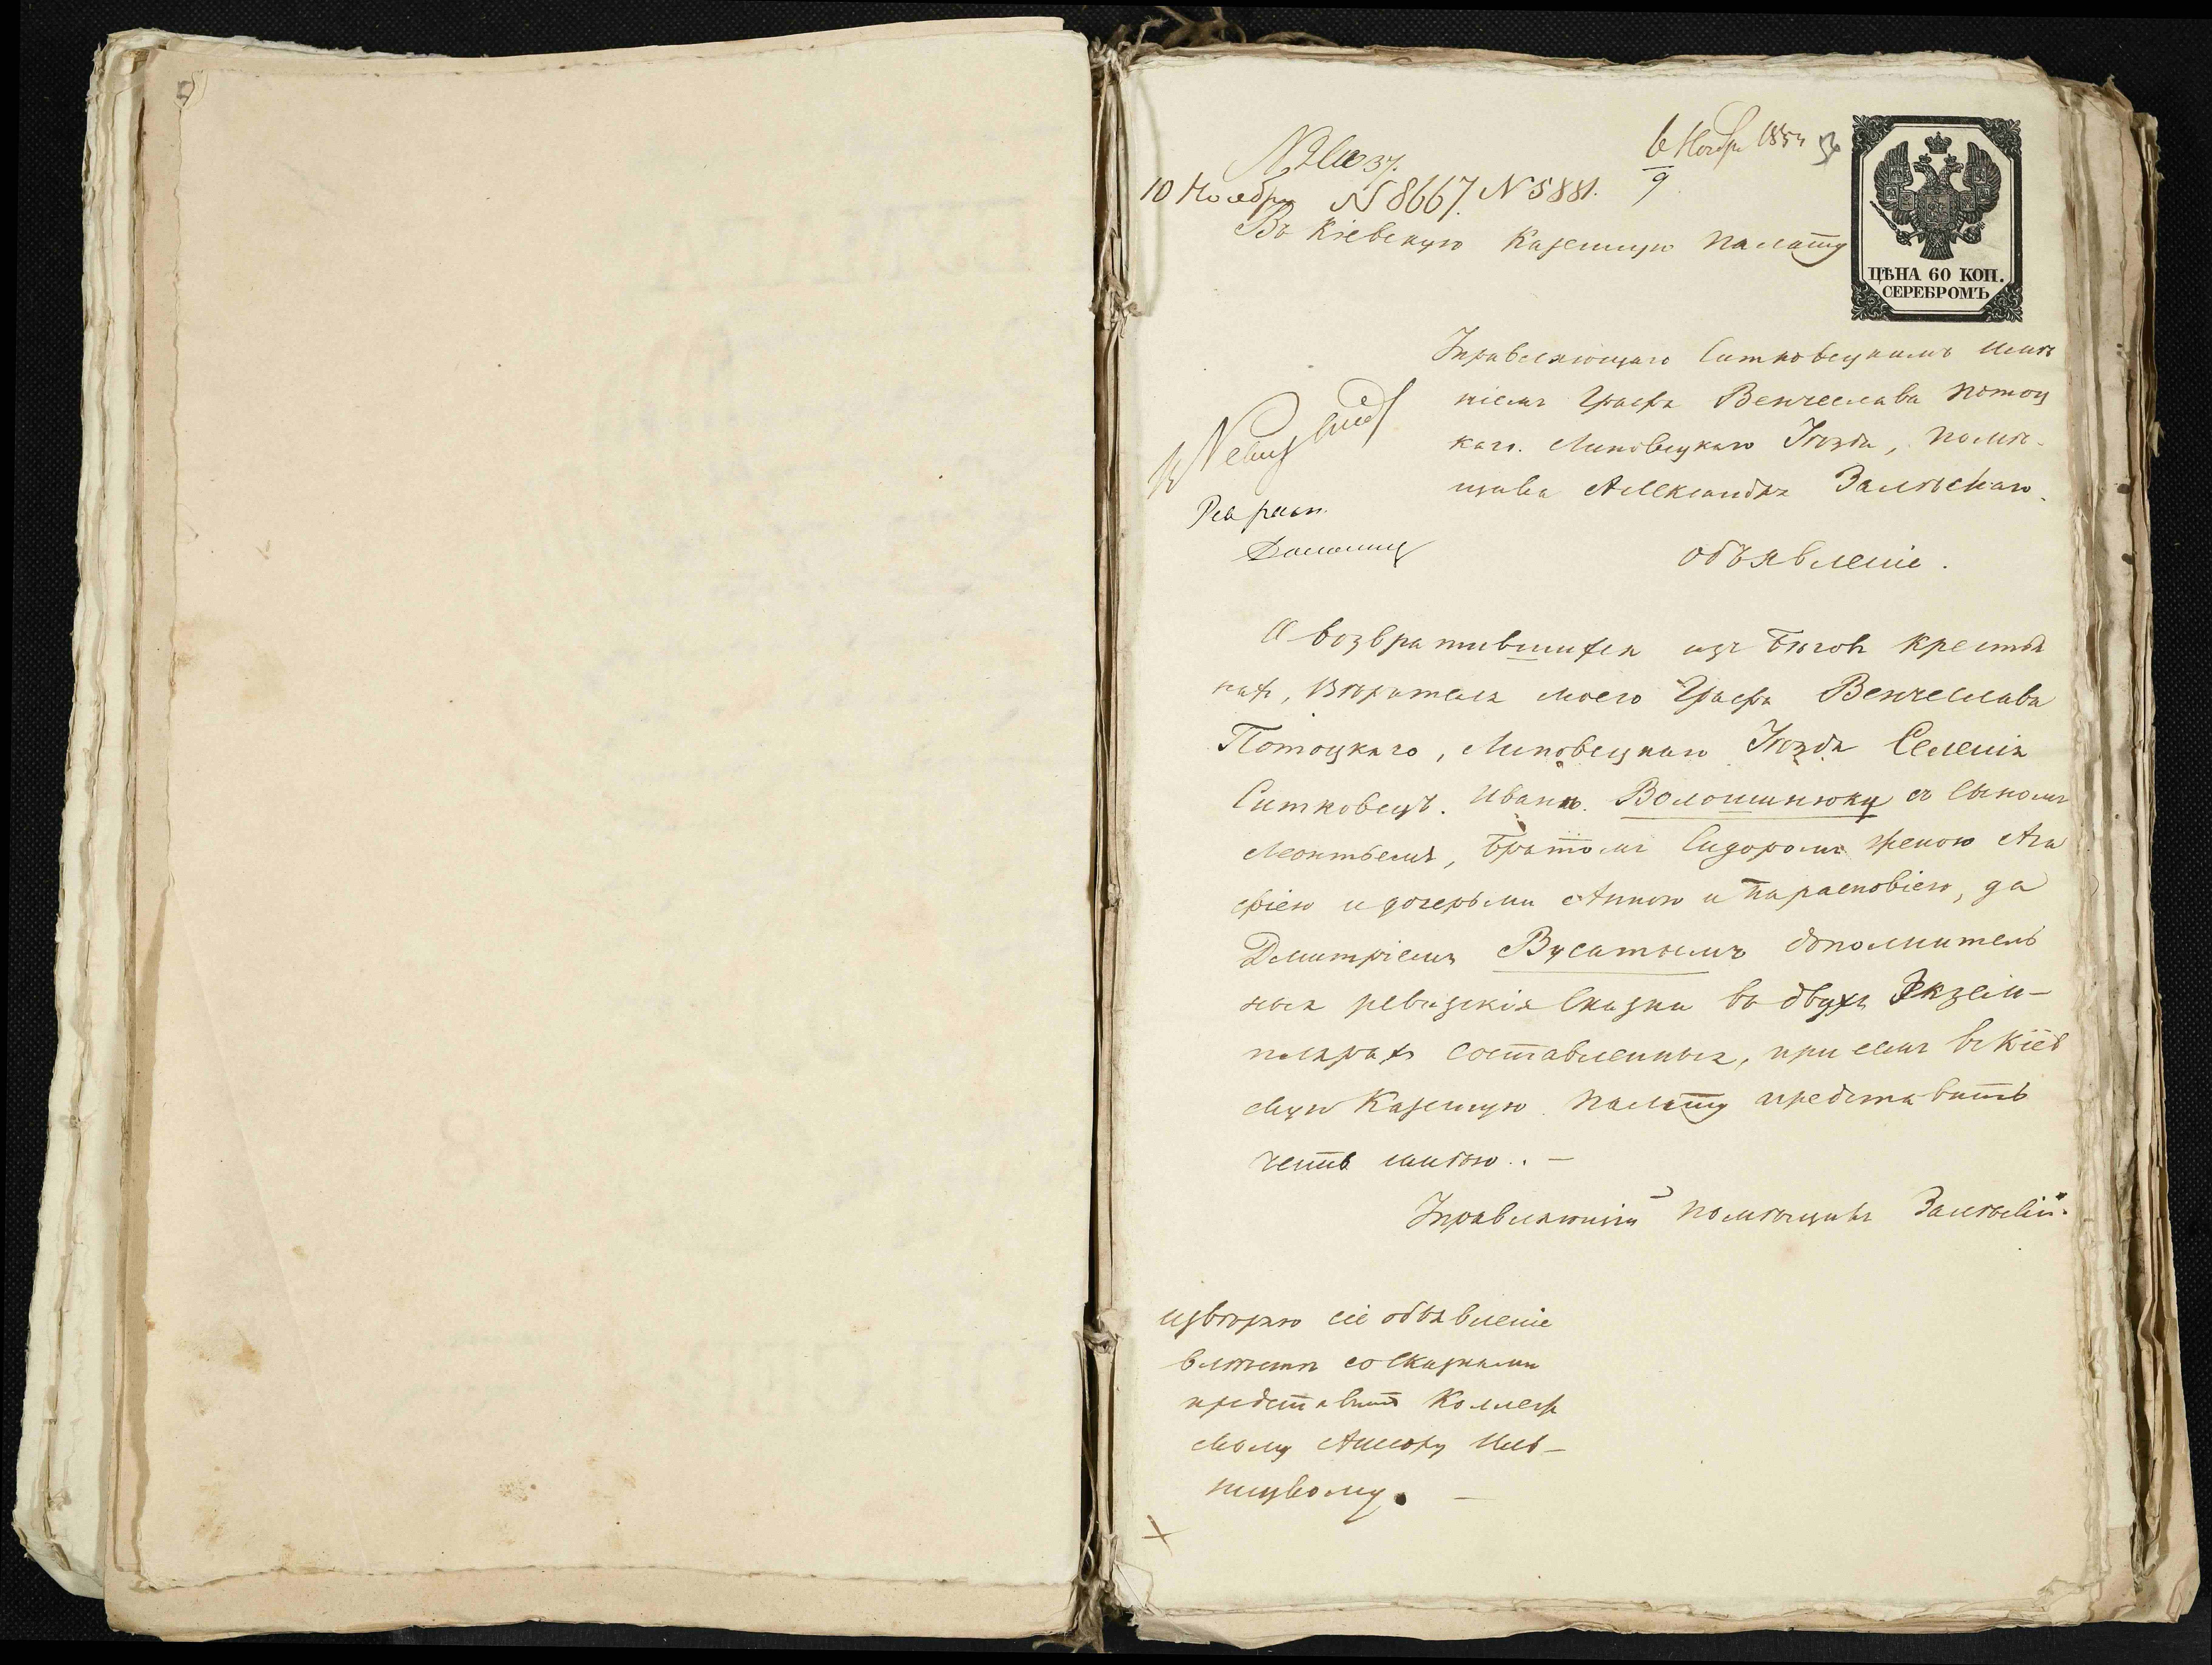 6 Ноября 1854
9
10 Ноября N 8667. N 5881.
Въ Кіевскую Казенную Палату
ЦѢНА 60 КОП.
СЕРЕБРОМЪ
Управляющаго Ситковецкимъ имѣ
ніемъ Графа Венчеслава Потоц
каго. Липовецкаго Уѣзда, помѣ-
щика Александра Залѣскаго.
Объявленіе.
О возвратившихся изъ бѣговъ крестья
нахъ, вѣрителя моего Графа Венчеслава
Потоцкаго, Липовецкаго Уѣзда Селенія
Ситковецъ. Иванѣ Волошинюку съ сыномъ
Леонтьемъ, братомъ Сидоромъ женою Ага
фіею и дочерьми Анною и Парасковіею, да
Дмитріемъ Вусатымъ дополнитель
ныя ревизскія сказки въ двухъ Экзем-
плярахъ составленныя, при семъ въ Кіев
скую Казенную Палату представить
честь имѣю. . —
Управляющій помѣщикъ Залѣскій.
ввѣряю сіе объявленіе
вмѣстѣ со сказками
представить Коллеж
скому